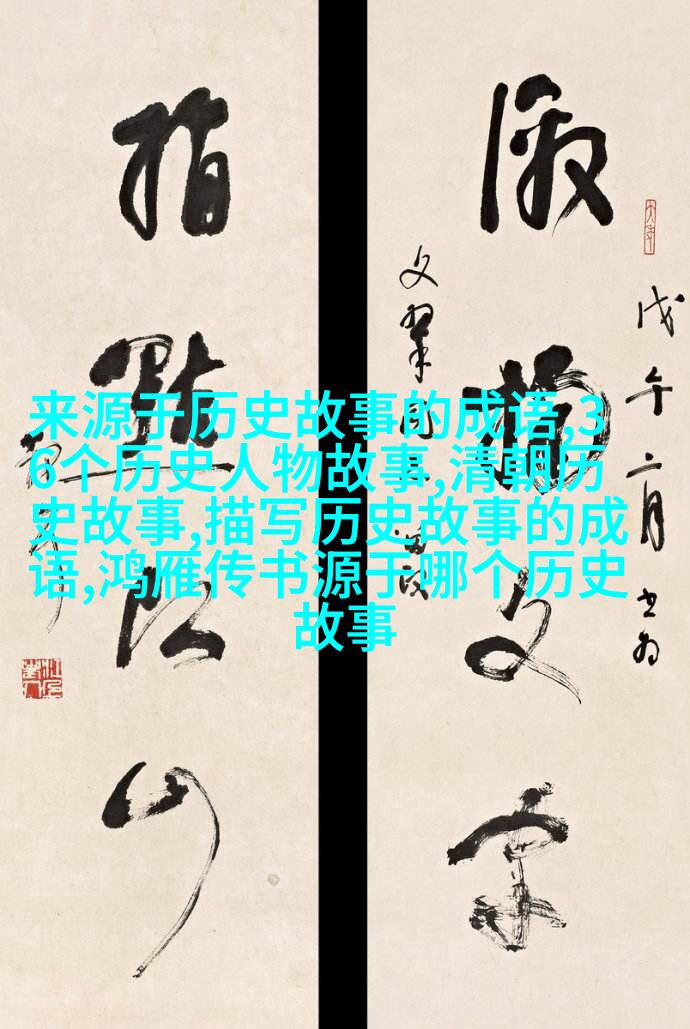 来源于历史故事的成语,3
6个历史人物故事,清朝历
史故事,描写历史故事的成
语,鸿雁传书源于哪个历史
故事
戊午二月书为
激揚文字
指點江山